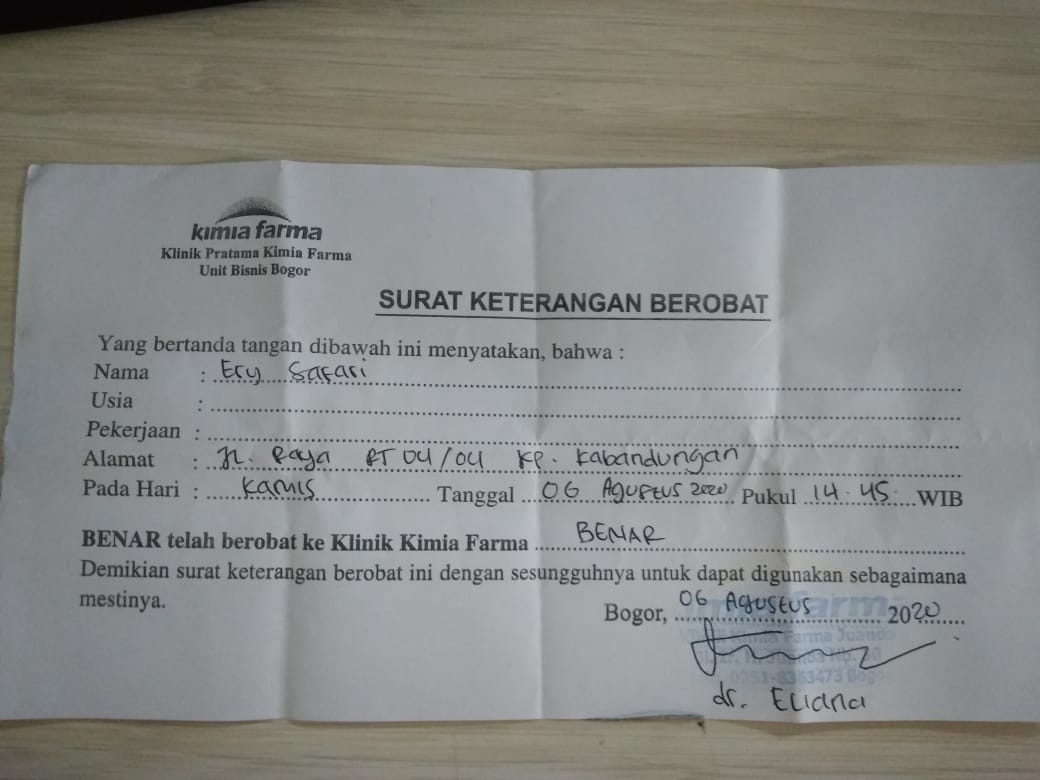 kimia farma
Klinik Pratama Kimia Farma
Unit Bisnis Bogor
SURAT KETERANGAN BEROBAT
Yang bertanda tangan dibawah ini menyatakan, bahwa :
Nama : Ery Safari
Usia :
Pekerjaan :
Alamat : Jl. Raya RT 04/04 KP. Kabandungan
Pada Hari : Kamis Tanggal 06 AGUSTUS 2020 Pukul 14.45 WIB
BENAR telah berobat ke Klinik Kimia Farma BENAR
Demikian surat keterangan berobat ini dengan sesungguhnya untuk dapat digunakan sebagaimana
mestinya.
Bogor, 06 AGUSTUS 2020
farma
Farma Juanda
dr. Eliana